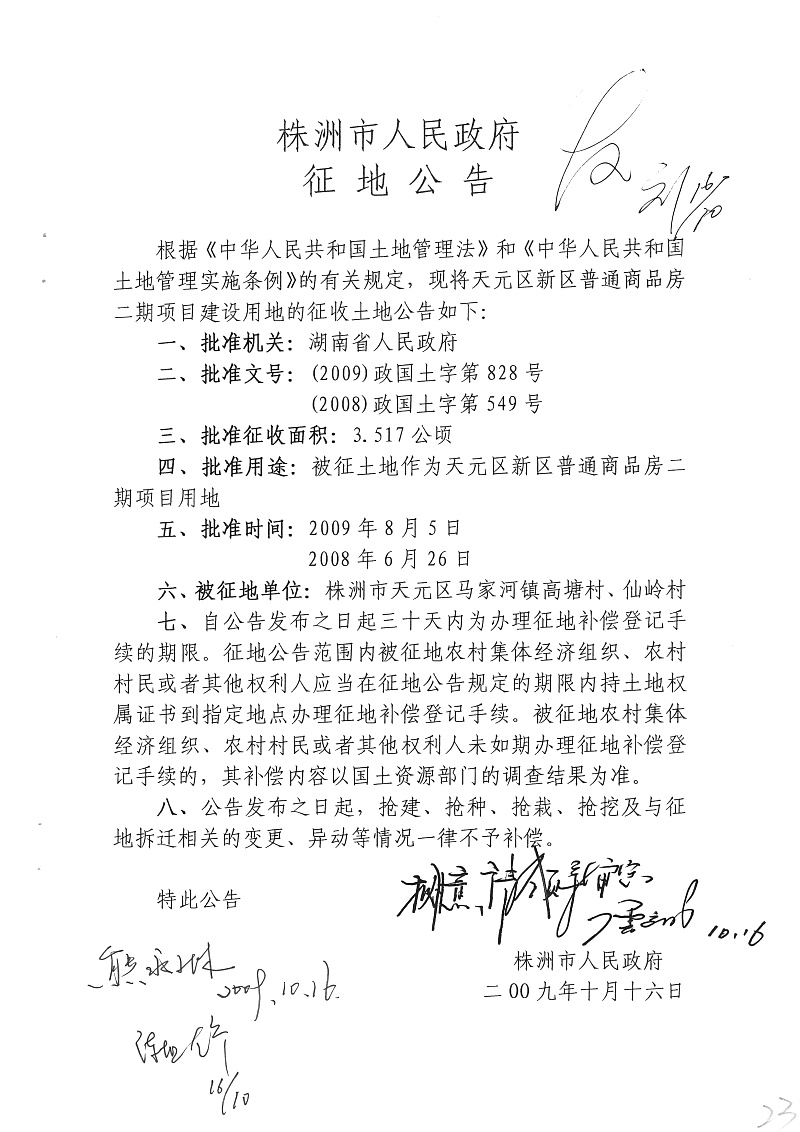 株洲市人民政府
征地公告
发
刘 16/10
根据《中华人民共和国土地管理法》和《中华人民共和国
土地管理实施条例》的有关规定，现将天元区新区普通商品房
二期项目建设用地的征收土地公告如下：
一、批准机关：湖南省人民政府
二、批准文号：(2009)政国土字第828号
(2008)政国土字第549号
三、批准征收面积：3.517公顷
四、批准用途：被征土地作为天元区新区普通商品房二
期项目用地
五、批准时间：2009年8月5日
2008年6月26日
六、被征地单位：株洲市天元区马家河镇高塘村、仙岭村
七、自公告发布之日起三十天内为办理征地补偿登记手
续的期限。征地公告范围内被征地农村集体经济组织、农村
村民或者其他权利人应当在征地公告规定的期限内持土地权
属证书到指定地点办理征地补偿登记手续。被征地农村集体
经济组织、农村村民或者其他权利人未如期办理征地补偿登
记手续的，其补偿内容以国土资源部门的调查结果为准。
八、公告发布之日起，抢建、抢种、抢栽、抢挖及与征
地拆迁相关的变更、异动等情况一律不予补偿。
特此公告
10.16
株洲市人民政府
二00九年十月十六日
2009.10.16.
16/10
23